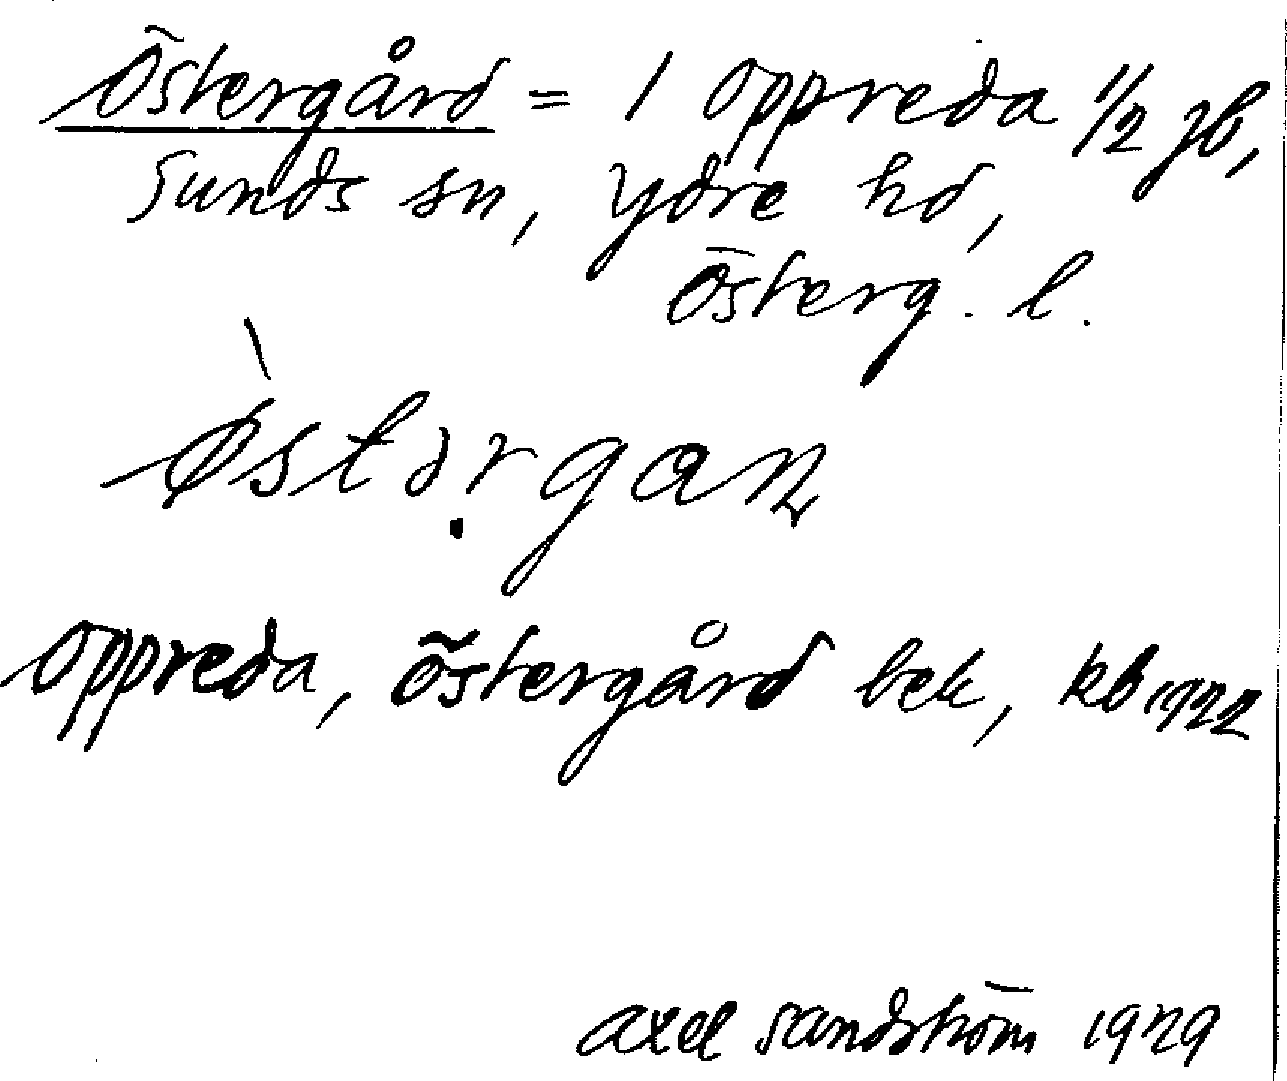 Östergård = 1 Oppreda 1/2 jb,
Sunds sn, Ydre hd,
Österg. l.
Oppreda, Östergård bek, kb 1922
Axel Sandström 1929